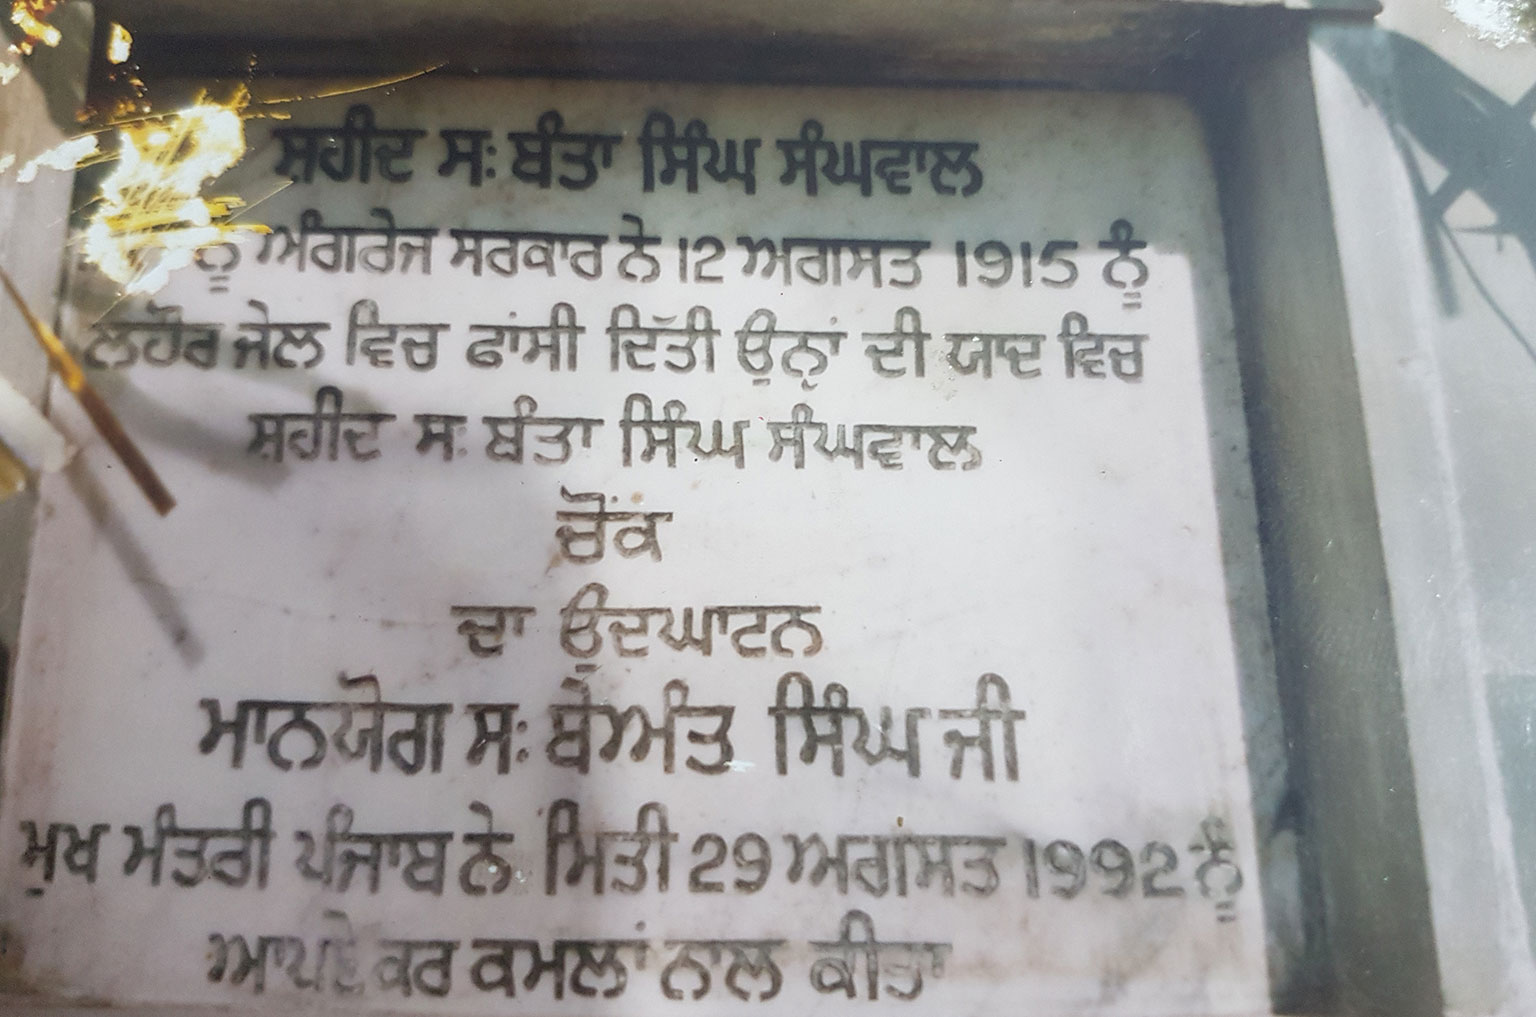 ਸ਼ਹੀਦ ਸ: ਬੰਤਾ ਸਿੰਘ ਸੰਘਵਾਲ
ਨੂੰ ਅੰਗਰੇਜ ਸਰਕਾਰ ਨੇ 12 ਅਗਸਤ 1915 ਨੂੰ
ਲਹੌਰ ਜੇਲ ਵਿਚ ਫਾਂਸੀ ਦਿੱਤੀ ਉਨ੍ਹਾਂ ਦੀ ਯਾਦ ਵਿਚ
ਸ਼ਹੀਦ ਸ: ਬੰਤਾ ਸਿੰਘ ਸੰਘਵਾਲ
ਚੌਂਕ
ਦਾ ਉਦਘਾਟਨ
ਮਾਨਯੋਗ ਸ: ਬੇਅੰਤ ਸਿੰਘ ਜੀ
ਮੁਖ ਮੰਤਰੀ ਪੰਜਾਬ ਨੇ ਮਿਤੀ 29 ਅਗਸਤ 1992 ਨੂੰ
ਆਪਣੇ ਕਰ ਕਮਲਾਂ ਨਾਲ ਕੀਤਾ